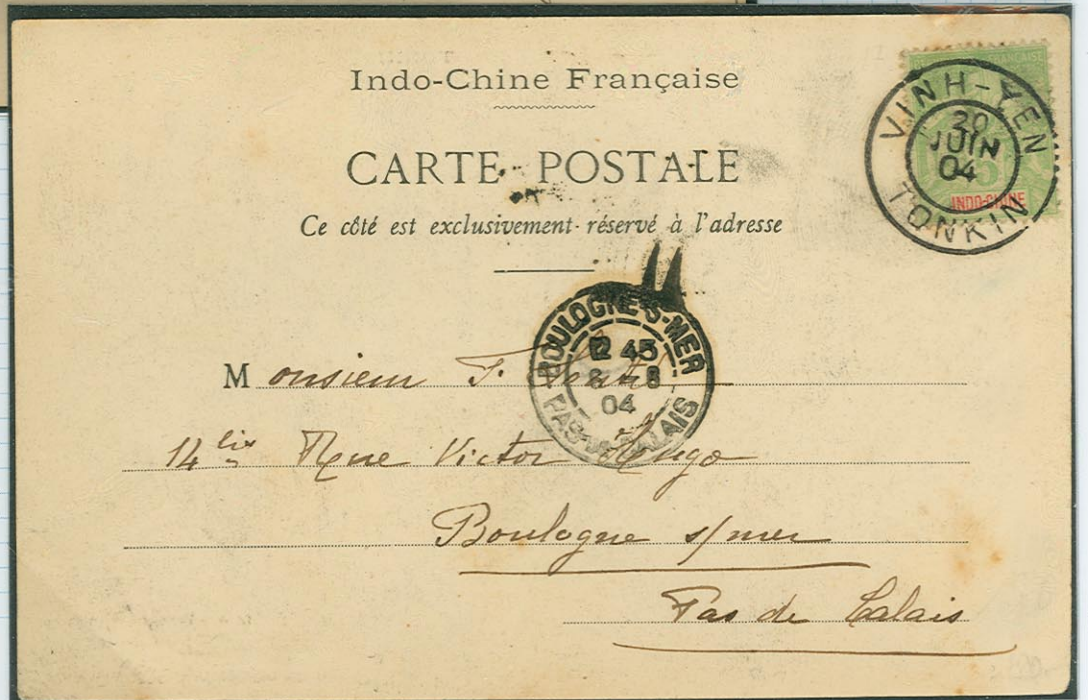 Indo-Chine Française
CARTE POSTALE
Ce côté est exclusivement réservé à l'adresse
VINH-YEN
20
JUIN
04
TONKIN
INDO-CHINE
BOULOGNE-S-MER
12 45
8-8
04
PAS-DE-CALAIS
Monsieur F.
14 bis Rue Victor Hugo
Boulogne s/mer
Pas de Calais